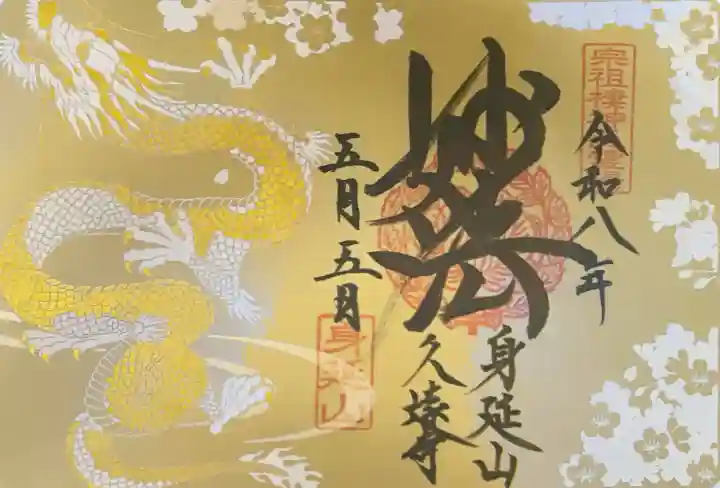 宗祖棲神
令和八年
妙法
身延山
久遠寺
五月五日
身延山